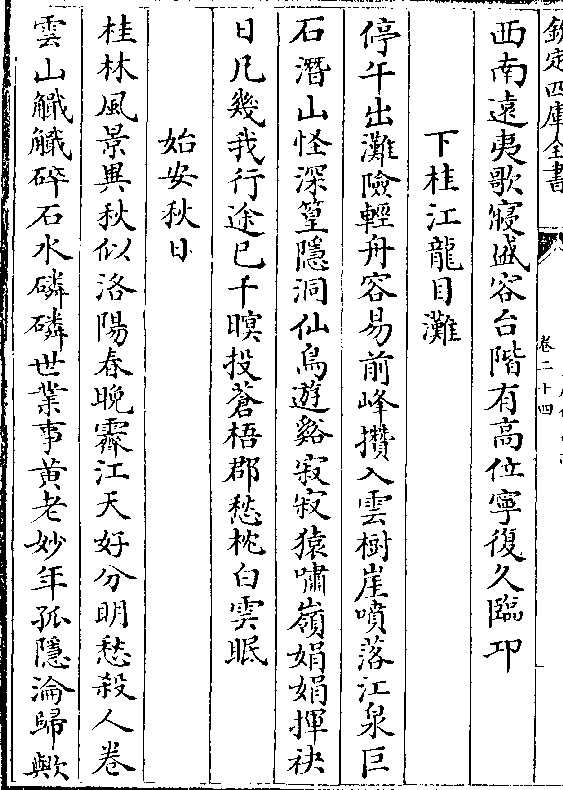 欽定四庫全書
卷二十四
西南遠夷歌寢盛容台階有高位寧復久臨卭
下桂江龍目灘
停午出灘險輕舟容易前峰攢入雲樹崖噴落江泉巨
石潛山怪深篁隱洞仙鳥遊谿寂寂猿嘯嶺娟娟揮袂
日凡幾我行途已千暝投蒼梧郡愁枕白雲眠
始安秋日
桂林風景異秋似洛陽春晚霽江天好分明愁殺人卷
雲山碎石水磷磷世業事黃老妙年孤隱淪歸歟